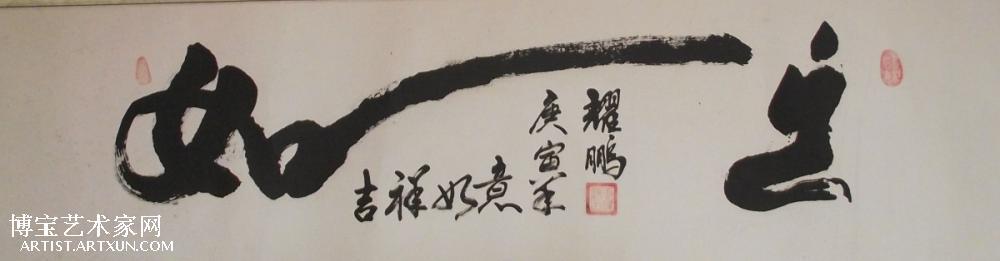 如意
耀鵬
庚寅年
吉祥如意
博宝艺术家网
ARTIST.ARTXUN.COM